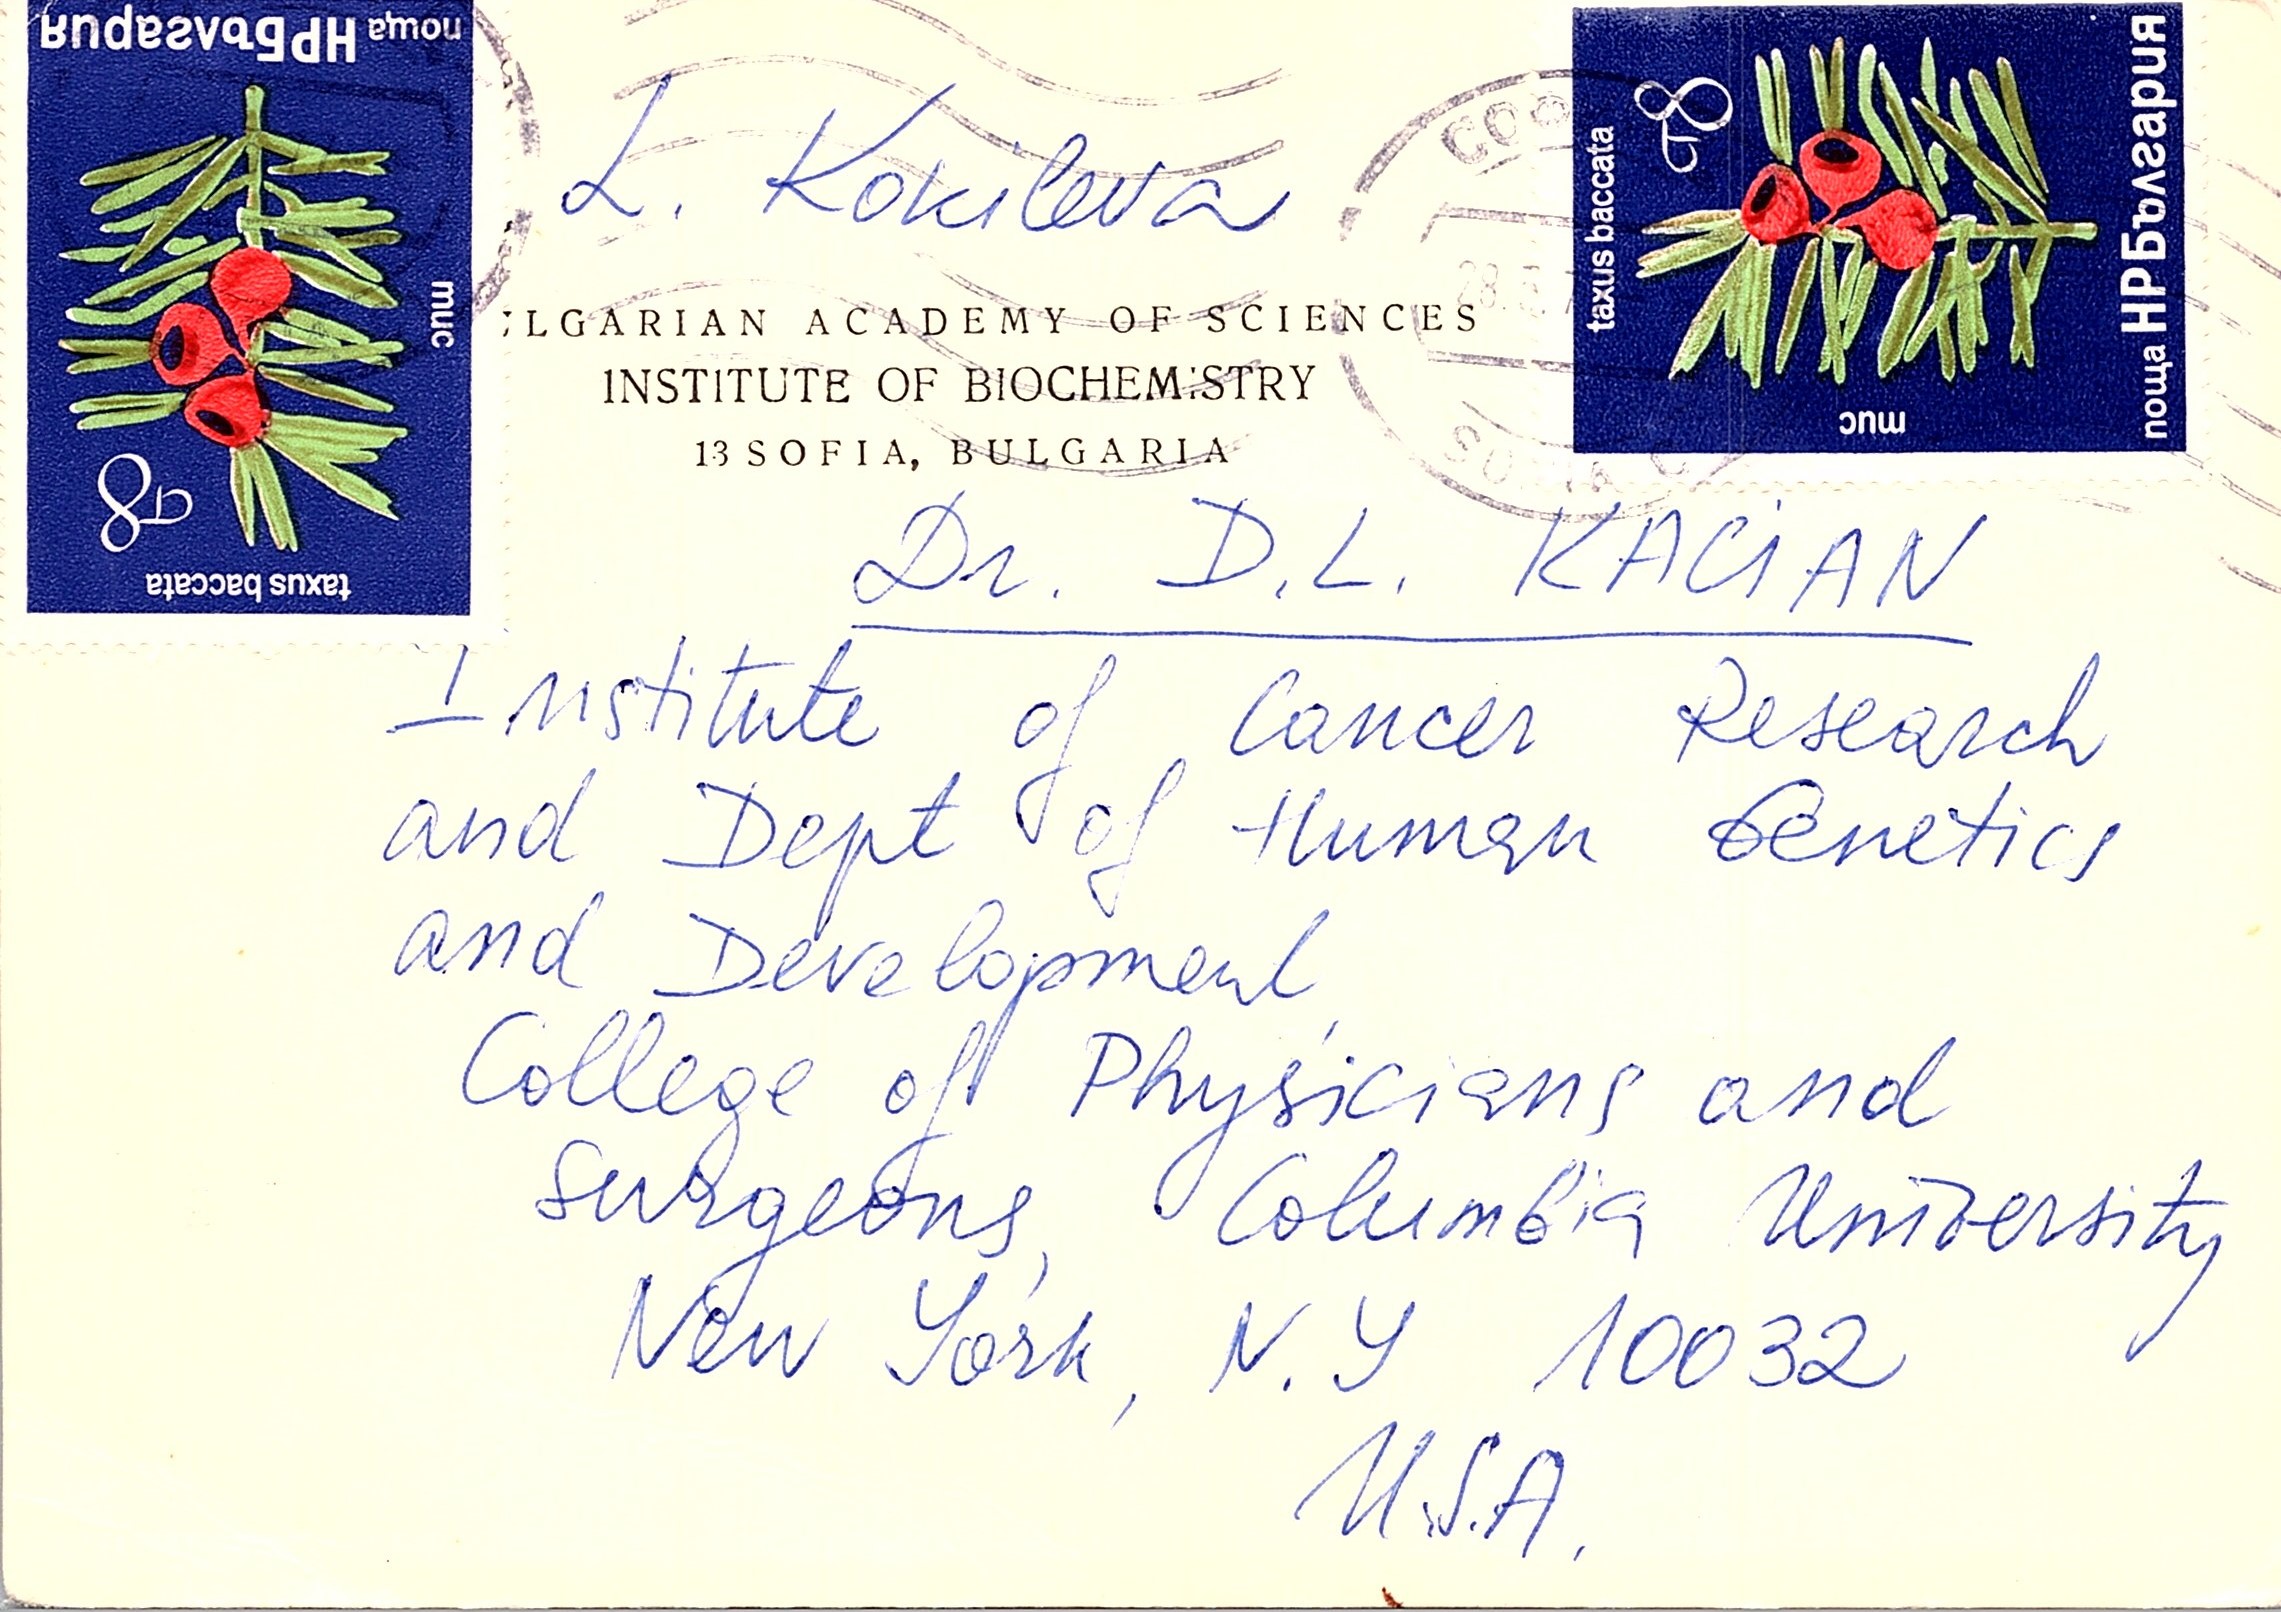 поща НРБългария
тис
8
taxus baccata
L. Kokileva
LGARIAN ACADEMY OF SCIENCES
INSTITUTE OF BIOCHEMISTRY
13 SOFIA, BULGARIA
taxus baccata
8
тис
поща НРБългария
Dr. D.L. KACIAN
Institute of Cancer Research
and Dept of Human Genetics
and Development,
College of Physicians and
Surgeons, Columbia University
New York, N.Y 10032
U.S.A.